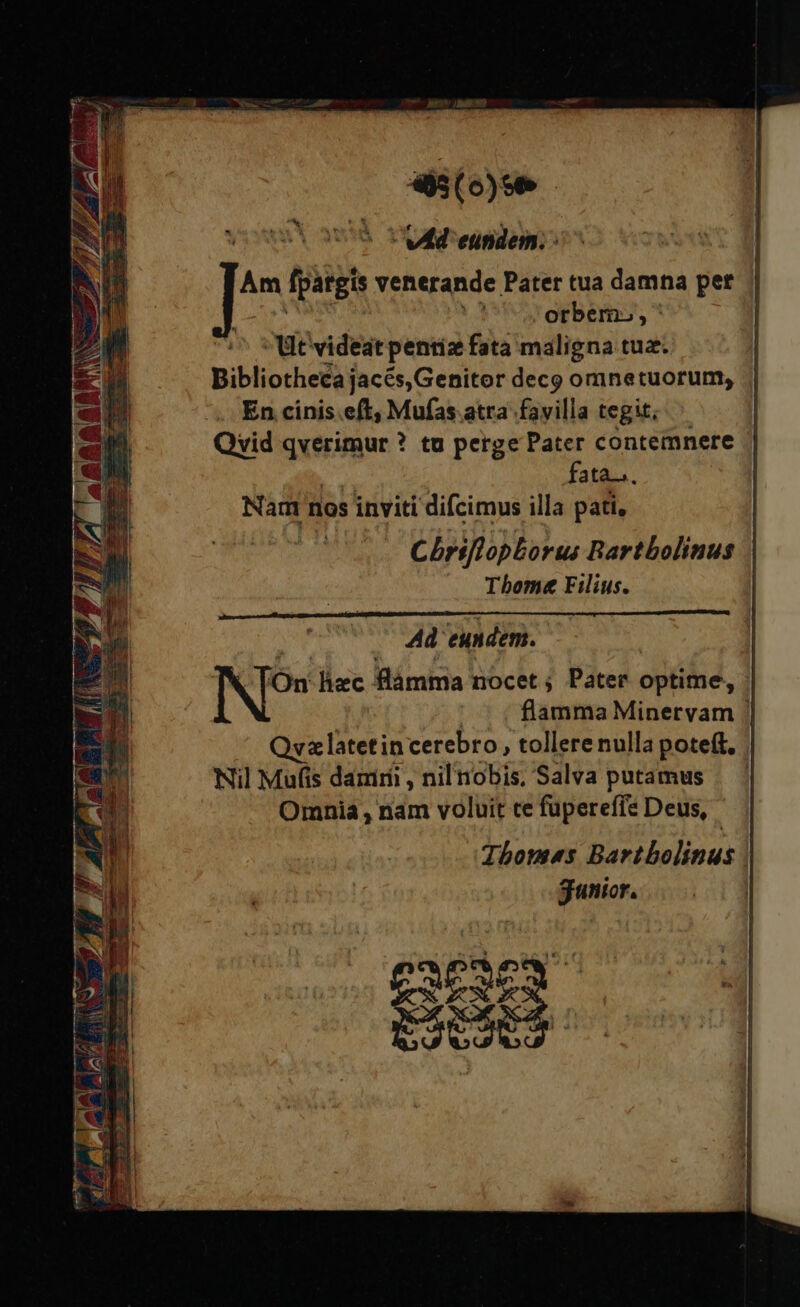 (o)
Ad eundem.
JAm ſpargis venerande Pater tua damna per
orbem,
Ut videat pentiæ fata maligna tuæ.
Bibliotheca jacés, Genitor decꝰ omne tuorum,
En cinis eſt, Muſas atra favilla tegit.
Qvid qverimur ? tu perge Pater contemnere
fata.
Nam nos inviti diſcimus illa pati,
Chriſtophorus Bartholinus
Thomæ Filius.
Ad eundem.
NOn hæc flamma nocet ; Pater optime,
flamma Minervam
Qvæ latet in cerebro, tollere nulla poteſt.
Nil Muſis damni, nil nobis. Salva putamus
Omnia, nam voluit te ſupereſſe Deus,
Thomas Bartholinus
Junior.